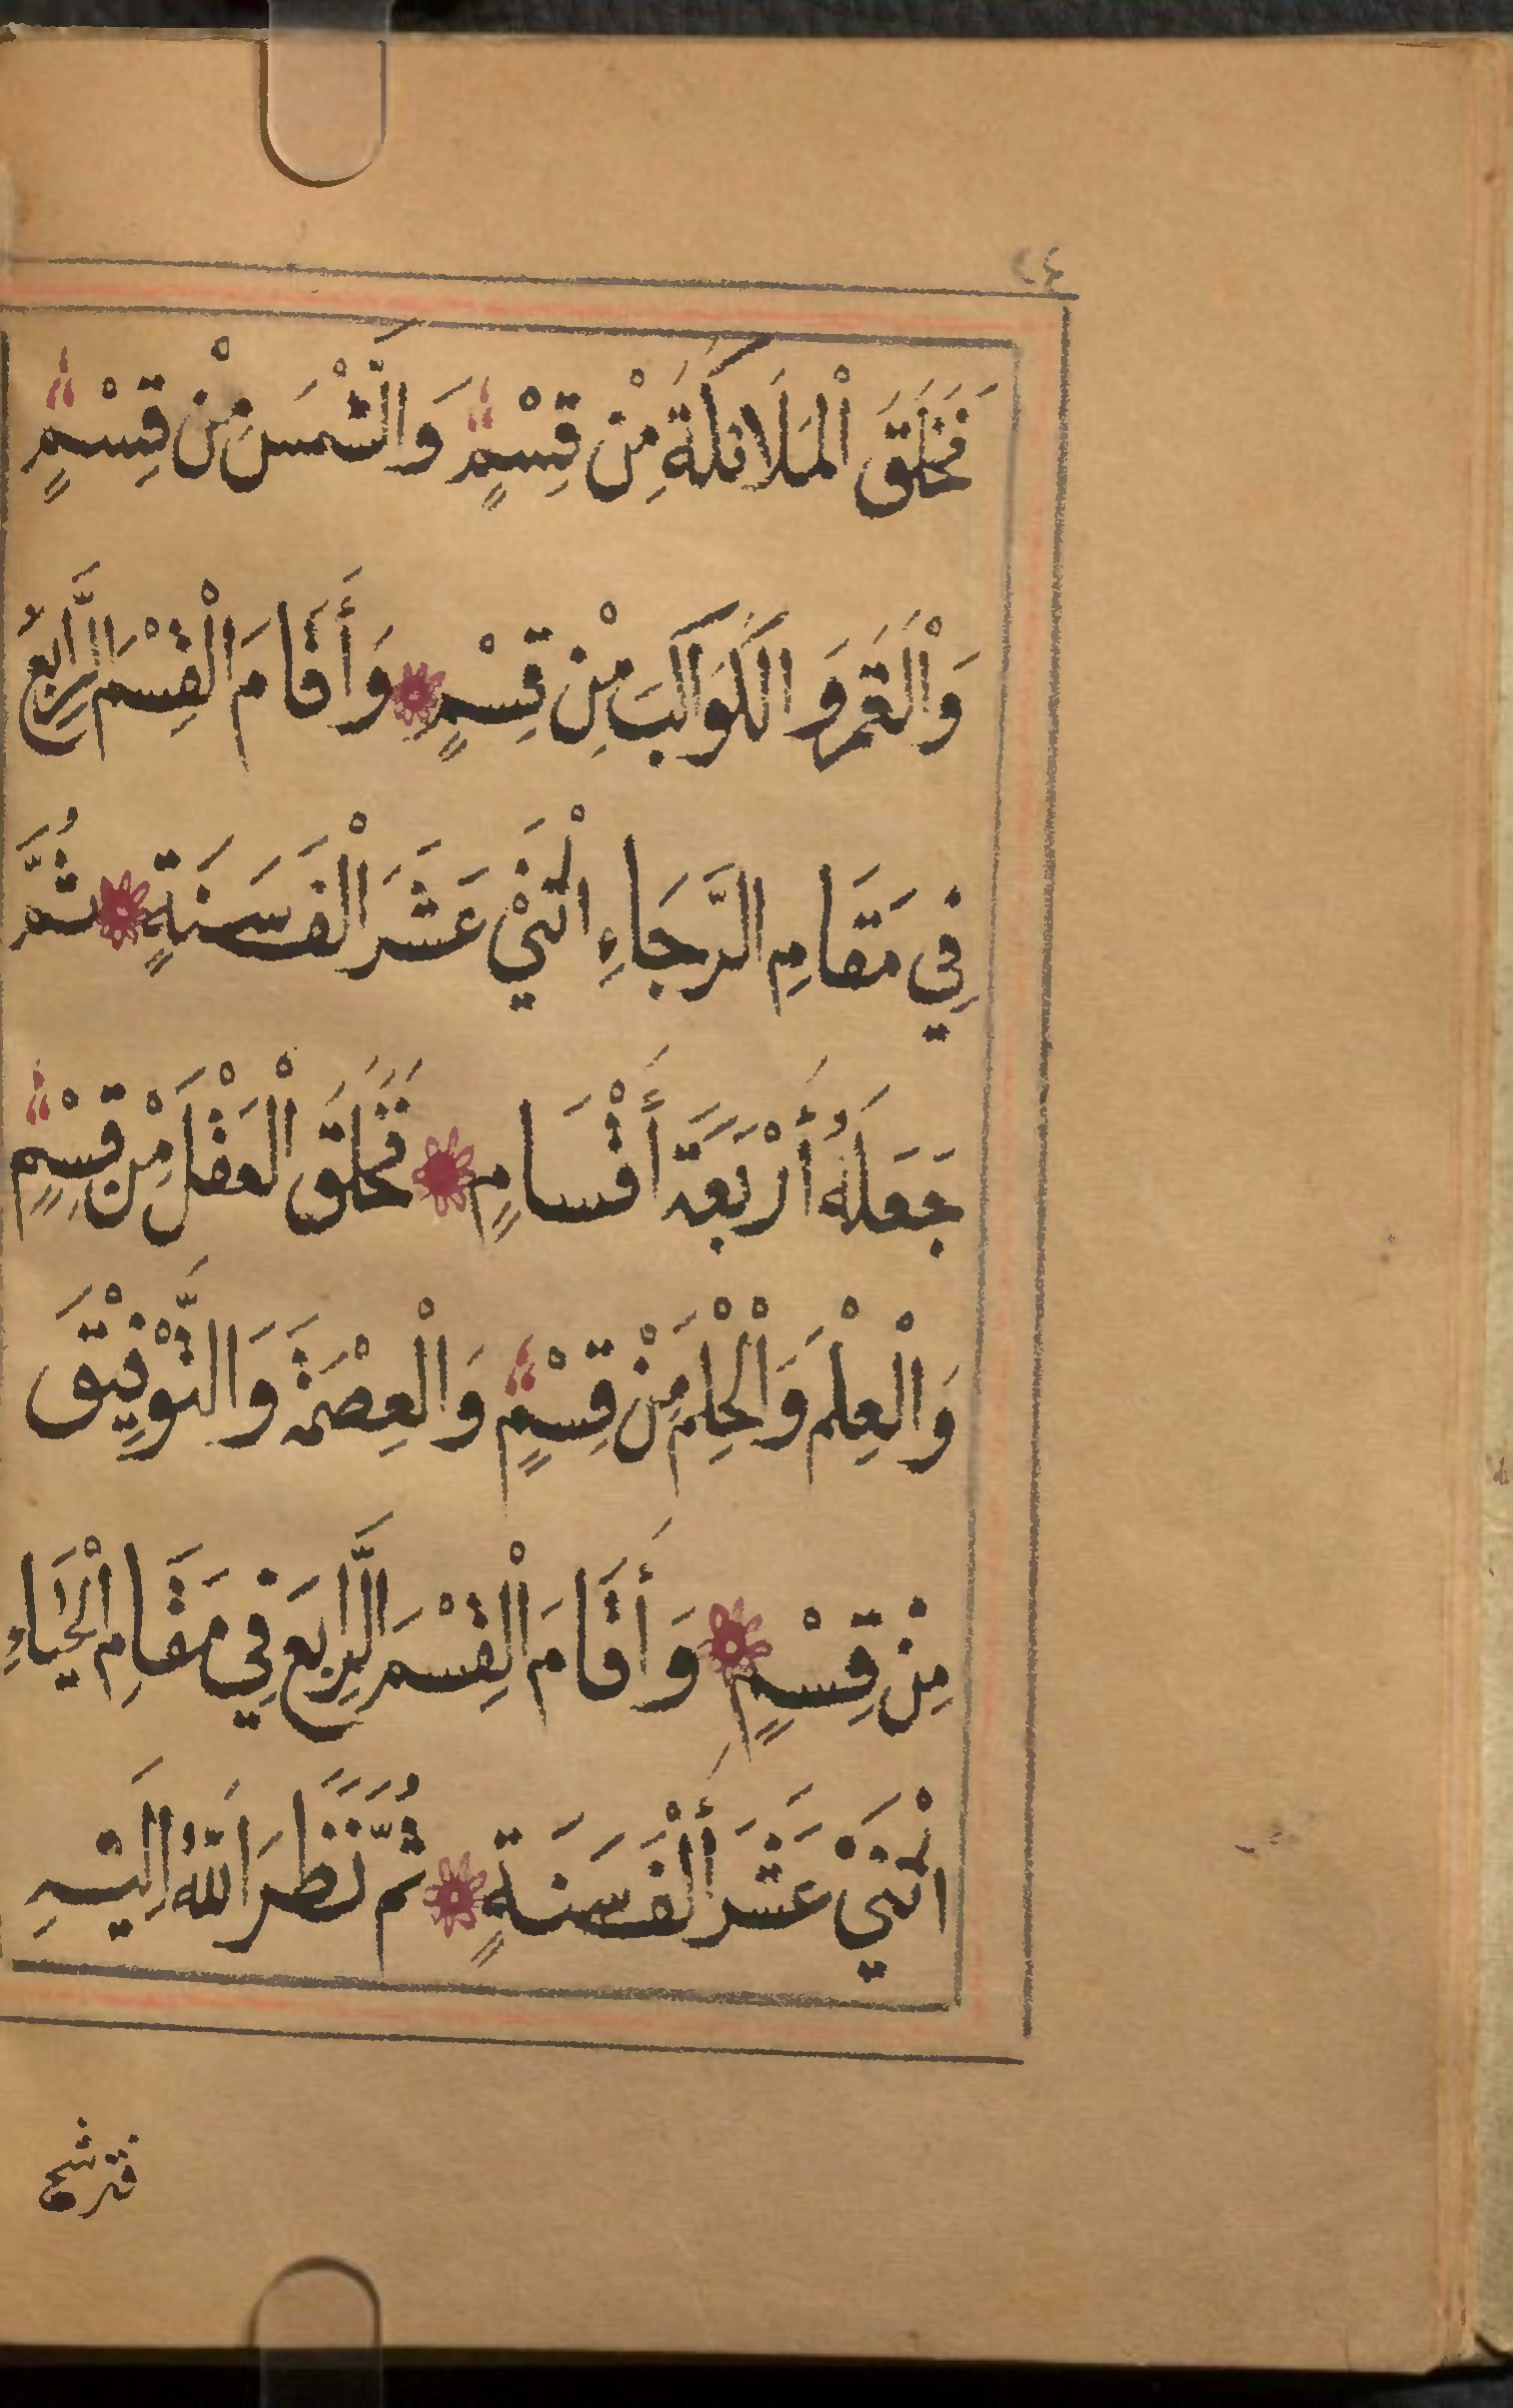 ٢٤
فَخَلَقَ الْمَلَائِكَةَ مِنْ قِسْمٍ وَالشَّمْسَ مِنْ قِسْمٍ
وَالْقَمَرَ وَالْكَوَاكِبَ مِنْ قِسْمٍ وَأَقَامَ الْقِسْمَ الرَّابِعَ
فِي مَقَامِ الرَّجَاءِ اثْنَيْ عَشَرَ أَلْفَ سَنَةٍ ثُمَّ
جَعَلَهُ أَرْبَعَةَ أَقْسَامٍ فَخَلَقَ الْعَقْلَ مِنْ قِسْمٍ
وَالْعِلْمَ وَالْحِلْمَ مِنْ قِسْمٍ وَالْعِصْمَةَ وَالتَّوْفِيْقَ
مِنْ قِسْمٍ وَأَقَامَ الْقِسْمَ الرَّابِعَ فِي مَقَامِ الْحَيَاءِ
اثْنَيْ عَشَرَ أَلْفَ سَنَةٍ ثُمَّ نَظَرَ اللهُ إِلَيْهِ
فترشح